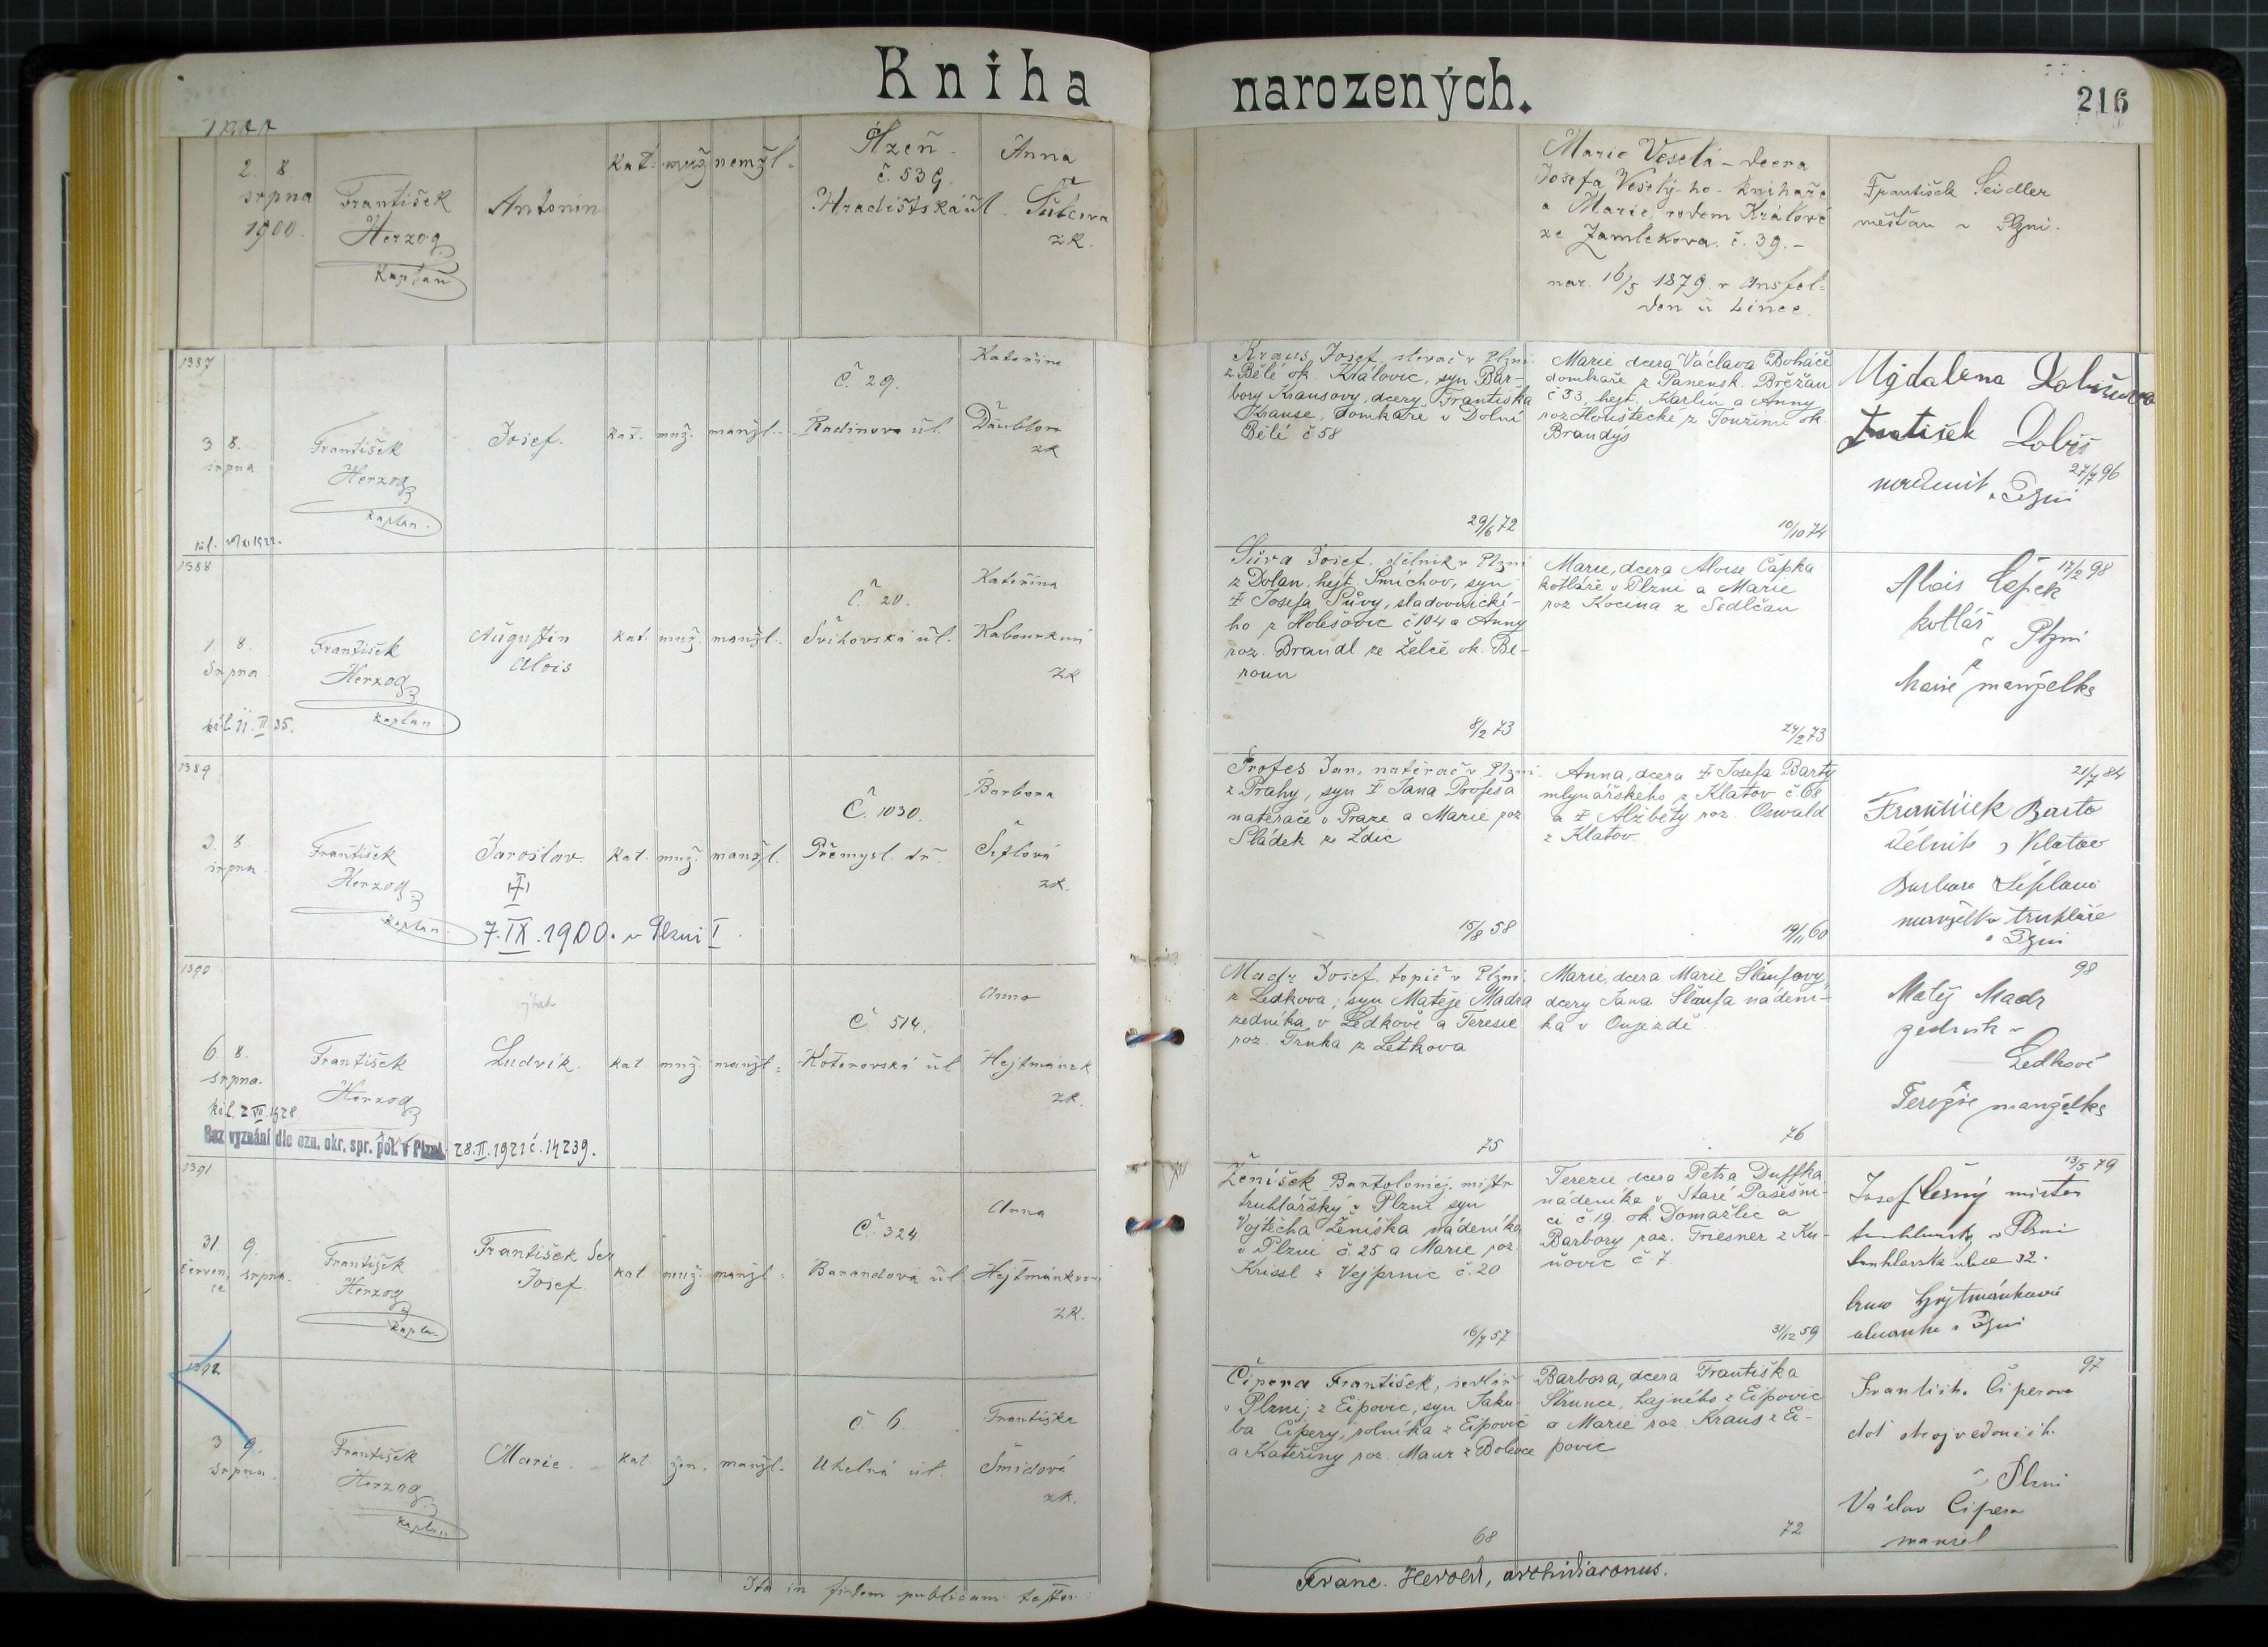 Kniha narozených.
216
2. 8.
srpna
1900.
František
Herzog
Kaplan
Antonín
kat. muž nemžl.
Plzeň
č. 539
Hradištská úl.
Anna
zk.
Marie Veselá - dcera
Josefa Veselý-ho - knihaře
a Marie, rodem Králové
ze Zamlekova. č. 39. -
nar. 16/5 1879. v Ansfel-
den u Lince.
František Seidler
měšťan v Plzni.
1387
3 8.
srpna
František
Herzog
kaplan.
Josef.
kat. muž. manžl.
Č. 29.
Radinova úl.
Kateřina
Däublová
zk
Kraus Josef, slevač v Plzni
z Bělé ok. Královic, syn Bar-
bory Krausovy, dcery Františka
Krause, domkáře v Dolní
Bělé č 58
29/6 72
Marie dcera Václava Boháče
domkaře z Panensk. Břežan
č 33, hejt. Karlín a Anny
roz. Houštecké z Toužimi ok.
Brandýs
10/10 74
Magdalena
27/7 96
v Plzni
1388
1. 8.
srpna
František
Herzog
kaplan.
Augustin
Alois
kat. muž. manžl.
Č. 20.
Švihovská úl.
Kateřina
zk
Sůva Josef, dělník v Plzni
z Dolan, hejt. Smíchov, syn
Josefa Sůvy, sladovnické-
ho z Holešovic č 104 a Anny
roz. Brandl ze Želče ok. Be-
roun
8/2 73
Marie, dcera Aloise Čapka
kotláře v Plzni a Marie
roz Kocina z Sedlčan
24/2 73
17/2 98
Alois Čápek
kotlář
v Plzni
Marie manželka
1389
2. 8
srpna.
František
Herzog
kaplan.
Jaroslav.
7. IX. 1900. v Plzni I.
kat. muž. manžl.
Č. 1030.
Přemysl. tř.
Barbora
zk.
Profes Jan, natěrač v Plzni
z Prahy, syn Jana Profesa
natěrače v Praze a Marie roz
Sládek ze Zdic
15/8 58
Anna, dcera Josefa Barty
mlynářského z Klatov č 68
a Alžběty roz. Oswald
z Klatov.
19/11 60
21/7 84
František Barta
dělník v Klatov
Barbora
manželka truhláře
v Plzni
1390
6. 8.
srpna.
Bez vyznání dle ozn. okr. spr. pol. v Plzni 28. II. 1921 č. 14239.
František
Herzog
Ludvík.
kat. muž. manžl.
Č. 514.
Koterovská úl
Anna
Hejtmánek
zk.
Madr Josef, topič v Plzni
z Ledkova, syn Matěje Madra
zedníka v Ledkově a Teresie
roz. Trnka z Letkova
75
Marie, dcera Marie Šlaufovy,
dcery Jana Šlaufa nádení-
ka v Oujezdě
76
98
Matěj Madr
zedník v
Ledkově
Terezie manželka
1391
31. 9.
červen- srpna.
ce
František
Herzog
Kaplan
František Ser
Josef
kat. muž. manžl.
Č. 324
Barandova úl
Anna
Hejtmánková
zk.
Ženíšek Bartoloměj. mistr
truhlářský v Plzni syn
Vojtěcha Ženíška nádeníka
v Plzni č. 25 a Marie roz.
Krissl z Vejprnic č. 20
16/7 57
Terezie dcera Petra Duffka
nádeníka v Staré Pasešni-
ci č. 19. ok. Domažlic a
Barbory roz. Triesner z Ku-
ňovic č 7.
31/12 59
13/5 79
Josef Černý mistr
truhlářský v Plzni
truhlarska ulice 32.
Anna Hejtmánková
v Plzni
1392.
3 9.
srpna.
František
Herzog
Kaplan
Marie.
kat. žen. manžl.
Č 6.
Uhelná úl.
Františka
Šmídová
zk.
Čipera František,
v Plzni, z Ejpovic, syn Jaku-
ba Čipery, rolníka z Ejpovic
a Kateřiny roz. Maur z Bolevce
68
Barbora, dcera Františka
Strunce, hajného z Ejpovic
a Marie roz. Kraus z Ej-
povic
72
97
Františka Čiperova
v Plzni
Václav Čipera
manžel
Ita in fidem publicam testor:
Franc. Herold, archidiaconus.